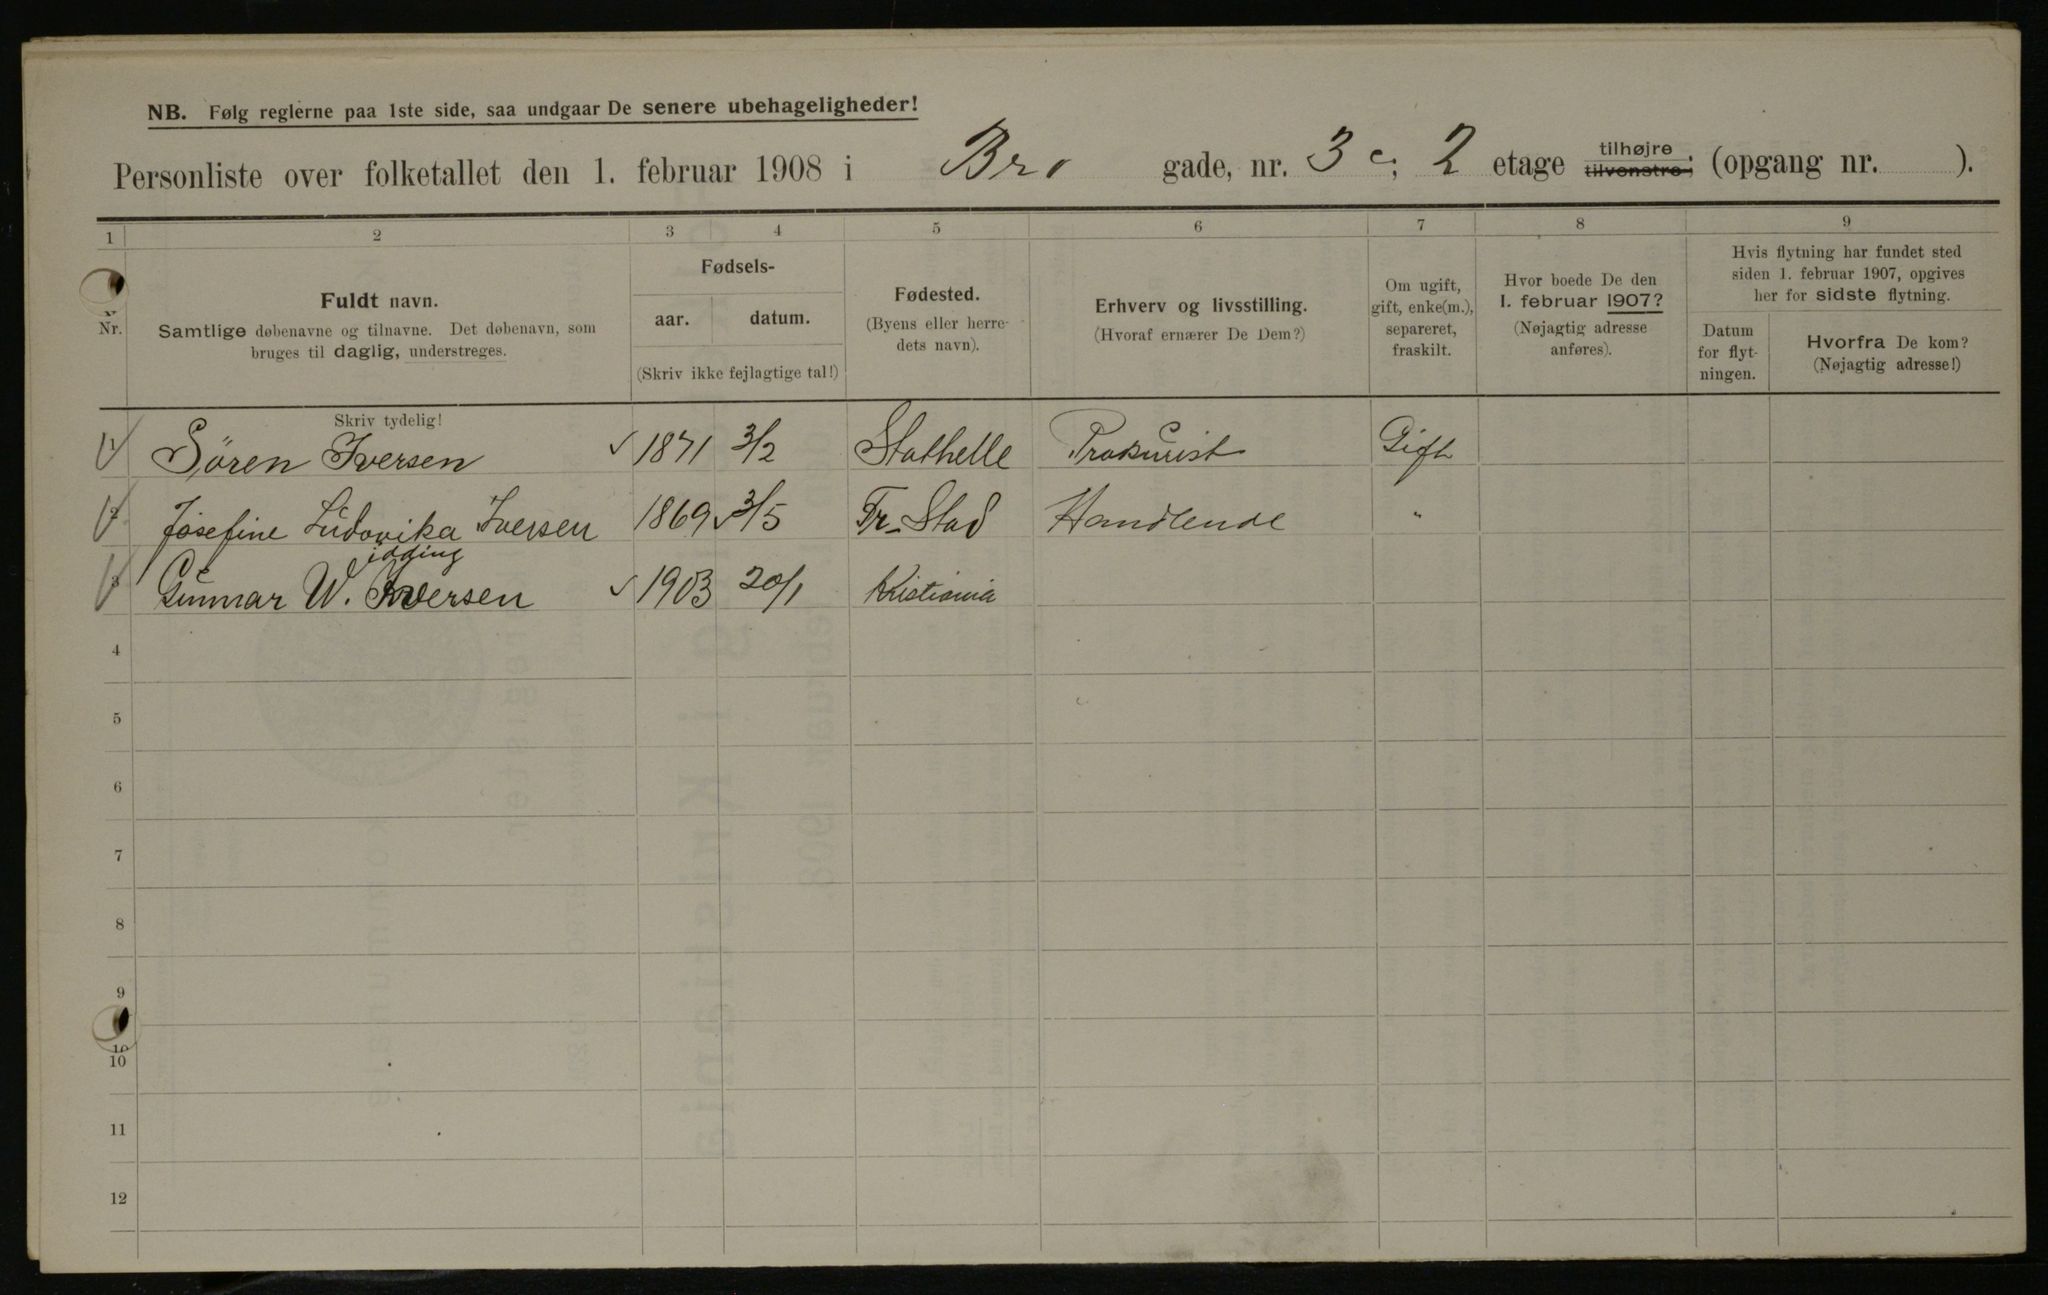 NB. Følg reglerne paa 1ste side, saa undgaar De senere ubehageligheder!
Personliste over folketallet den 1. februar 1908 i Bro gade, nr. 3 c; 2 etage tilhøjre tilvenstre; (opgang nr. ).
1 2 3 4 5 6 7 8 9
Nr.
Fuldt navn.
Samtlige døbenavne og tilnavne. Det døbenavn, som
bruges til daglig, understreges.
Fødsels-
aar. datum.
(Skriv ikke fejlagtige tal!)
Fødested.
(Byens eller herre-
dets navn).
Erhverv og livsstilling.
(Hvoraf ernærer De Dem?)
Om ugift,
gift, enke(m.),
separeret,
fraskilt.
Hvor boede De den
1. februar 1907?
(Nøjagtig adresse
anføres).
Hvis flytning har fundet sted
siden 1. februar 1907, opgives
her for sidste flytning.
Datum
for flyt-
ningen.
Hvorfra De kom?
(Nøjagtig adresse!)
Skriv tydelig!
1 Sören Iversen 1871 3/2 Stathelle Prokurist Gift
2 Josefine Ludovika Iversen 1869 3/5 Fr. Stad Handlende "
idding
3 Gunnar W. Iversen 1903 20/1 Kristiania
4
5
6
7
8
9
10
10
11
12